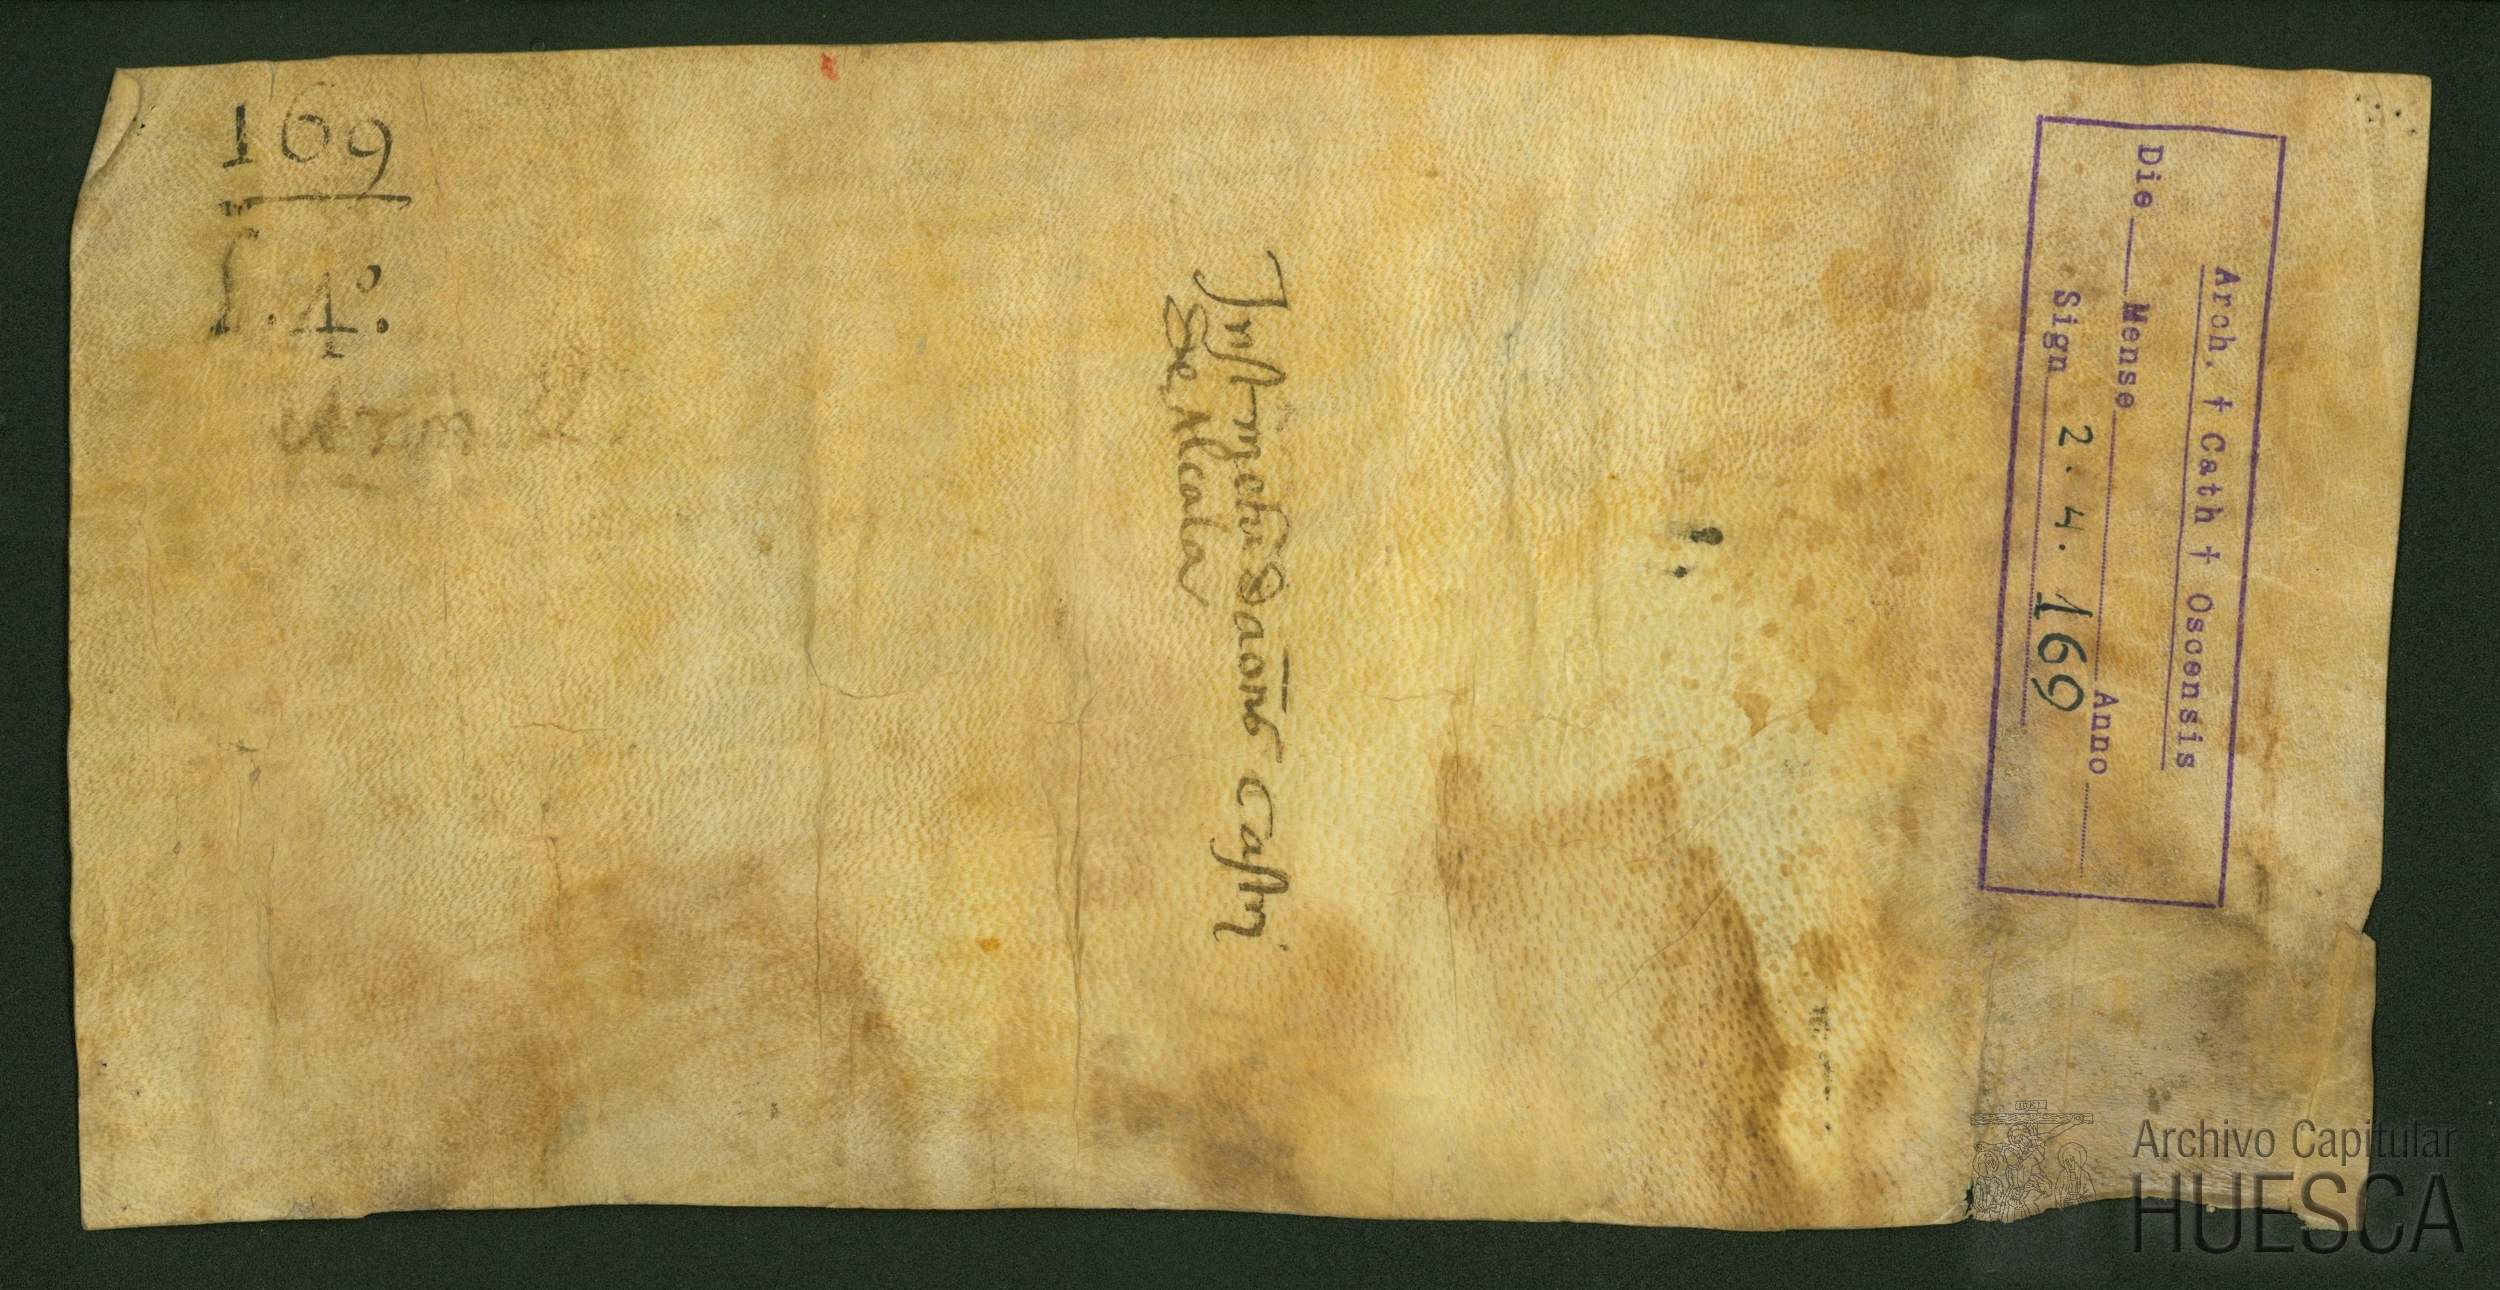 169
l. 4º.
Instrumētū Daōnis Castri
de Alcala
Arch. † Cath † Oscensis
Die Mense Anno
Sign 2.4.169
Archivo Capitular
HUESCA